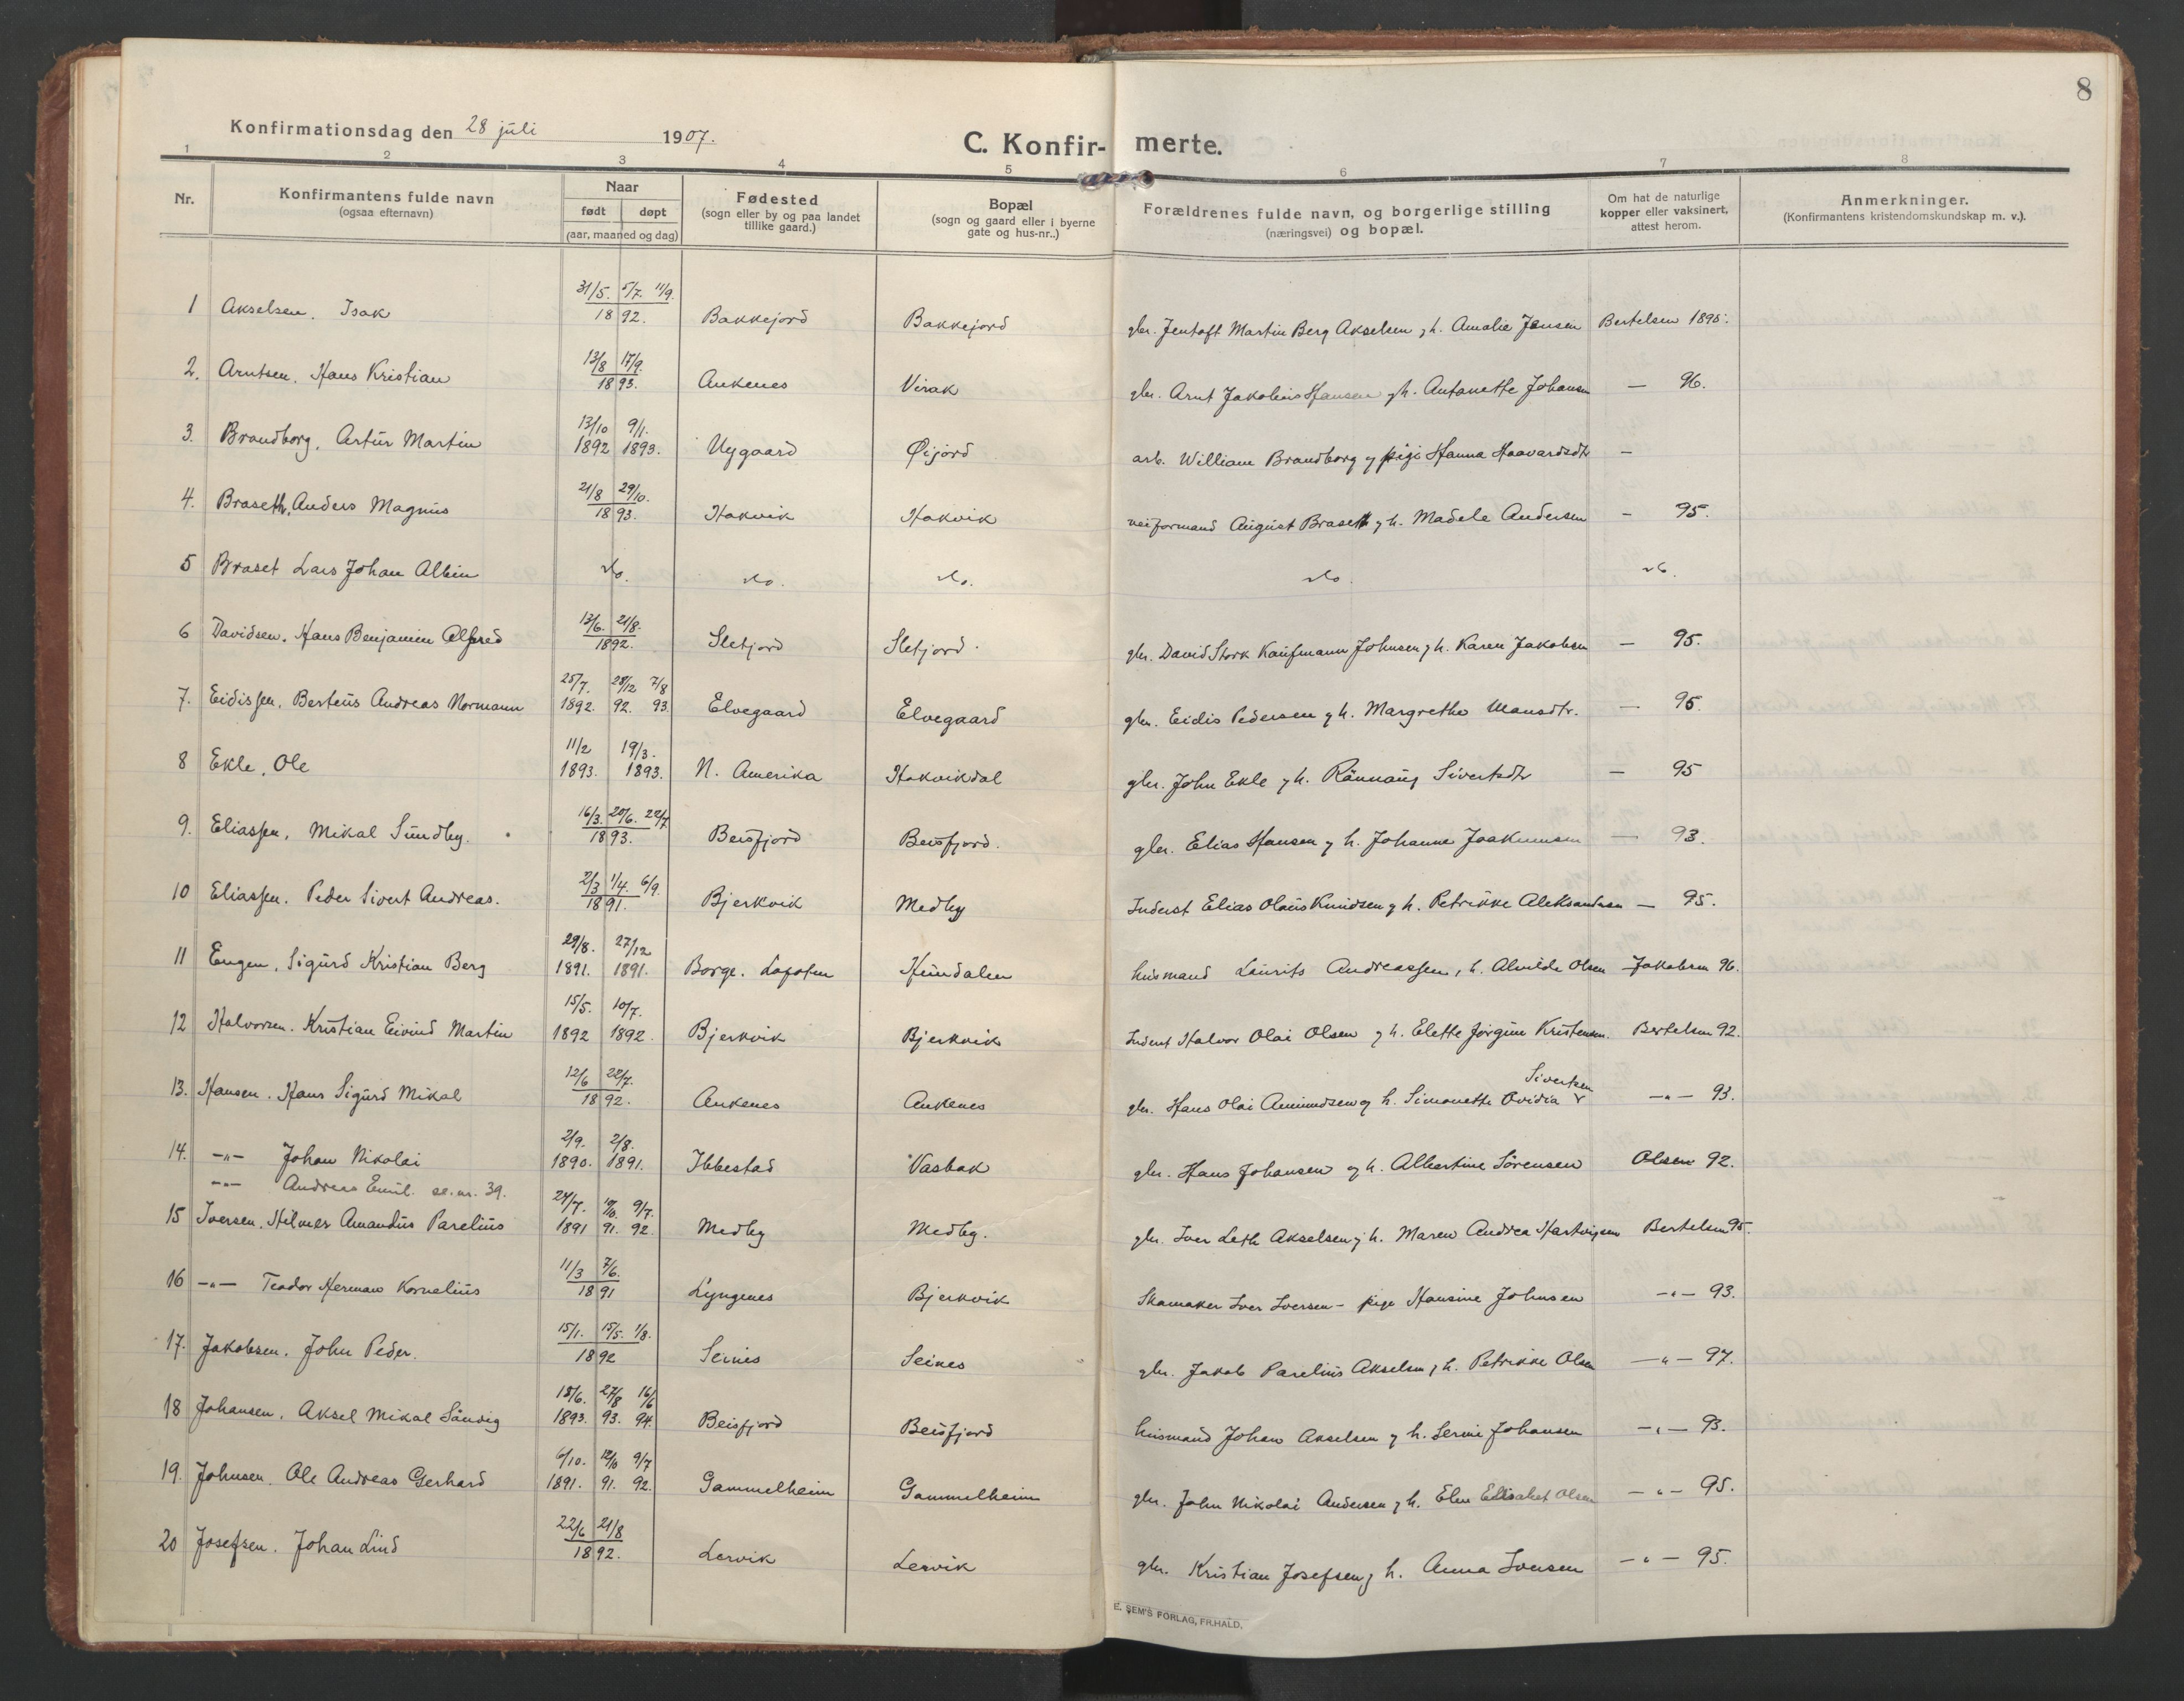 8
Konfirmationsdag den 28 juli 1907.
C. Konfir- merte.
1 2 3 4 5 6 7 8
Nr. Konfirmantens fulde navn (ogsaa efternavn) Naar født døpt (aar, maaned og dag) Fødested (sogn eller by og paa landet tillike gaard.) Bopæl (sogn og gaard eller i byerne gate og hus-nr..) Forældrenes fulde navn, og borgerlige stilling (næringsvei) og bopæl. Om hat de naturlige kopper eller vaksinert, attest herom. Anmerkninger. (Konfirmantens kristendomskundskap m. v.).
1 Akselsen. Isak 31/5. 5/7. 11/9. 1892. Bakkejord Bakkejord gbr. Jentoft Martin Berg Akselsen og h. Amalie Jensen Bertelsen 1895.
2. Arntsen. Hans Kristian 13/8 17/9. 1893. Ankenes Virak gbr. Arnt Jakobius Hansen og h. Antonette Johansen — 96.
3. Brandborg, Artur Martin 13/10 1892 9/1. 1893. Nygaard Øijord arb. William Brandborg og pige Hanna Haavardsdtr —
4. Braseth, Anders Magnus 21/8 29/10. 1893. Hakvik Hakvik veiformand August Braseth og h. Madele Andersen — 95.
5 Braset Lars Johan Albin do. do. do. do. do.
6 Davidsen. Hans Benjamin Alfred 13/6. 21/8. 1892. Sletjord Sletjord gbr. David Stork Kaufmann Johnsen og h. Karen Jakobsen — 95.
7. Eidissen. Berteus Andreas Normann 25/7. 1892. 28/12 92. 7/8 93. Elvegaard Elvegaard gbr. Eidis Pedersen og h. Margrethe Monsdtr. — 95.
8 Ekle, Ole 11/2 1893. 19/3. 1893. N. Amerika Hakvikdal gbr. John Ekle og h. Rannaug Sivertsdtr — 95
9. Eliassen, Mikal Sundby. 16/3. 20/6. 22/7 1893. Beisfjord Beisfjord. gbr. Elias Hansen og h. Johanne Joakimsen — 93.
10 Eliassen. Peder Sivert Andreas. 2/3 1/4. 6/9. 1891. Bjerkvik Medby Inderst Elias Olaus Knudsen og h. Petrikke Aleksandersen — 95.
11 Eugen, Sigurd Kristian Berg 29/8. 1891. 27/12 1891. Borge. Lofoten Hundalen husmand Laurits Andreassen, h. Alvilde Olsen Jakobsen 96.
12 Halvorsen. Kristian Eivind Martin 15/5. 1892 10/7. 1892. Bjerkvik Bjerkvik Inderst Halvor Olai Olsen og h. Elette Jørgine Kristensen. Bertelsen 92.
13. Hansen. Hans Sigurd Mikal 12/6 22/7. 1892. Ankenes Ankenes gbr. Hans Olai Amundsen og h. Simonette Ovidia Sivertsen —"— 93.
14. —"— Johan Nikolai 2/9. 1890. 2/8. 1891. Ibbestad Vasbak gbr. Hans Johansen og h. Albertine Sørensen Olsen 92.
—"— Andreas Emil. se nr. 39.
15 Iversen. Hilmer Amandus Parelius 24/7. 1891 91. 9/7. 92. Medby Medby. gbr. Iver Leth Akselsen og h. Maren Andrea Hartvigsen Bertelsen 95.
16 —"— Teodor Herman Kornelius 11/3 7/6. 1891 Lyngenes Bjerkvik Skomaker Iver Iversen - pige Hansine Johnsen —"— 93.
17. Jakobsen. John Peder. 15/1. 15/5. 1/8. 1892 Seines Seines gbr. Jakob Parelius Akselsen, h. Petrikke Olsen —"— 97.
18 Johansen. Aksel Mikal Sandvig 18/6. 1893. 27/8 93. 16/6 94. Beisfjord Beisfjord husmand Johan Akselsen og h. Serine Johansen —"— 93.
19. Johnsen. Ole Andreas Gerhard 6/10. 1891. 91. 9/7 92. Gammelheim Gammelheim gbr. John Nikolai Andersen og h. Elen Elisabet Olsen —"— 95.
20 Josefsen. Johan Lind 22/6 21/8 1892. Lervik Lervik gbr. Kristian Josefsen og h. Anna Ivensen —"— 95.
E. SEM'S FORLAG, FR.HALD.